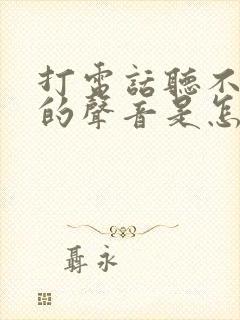 打電話聽不
的聲音是怎
聶永